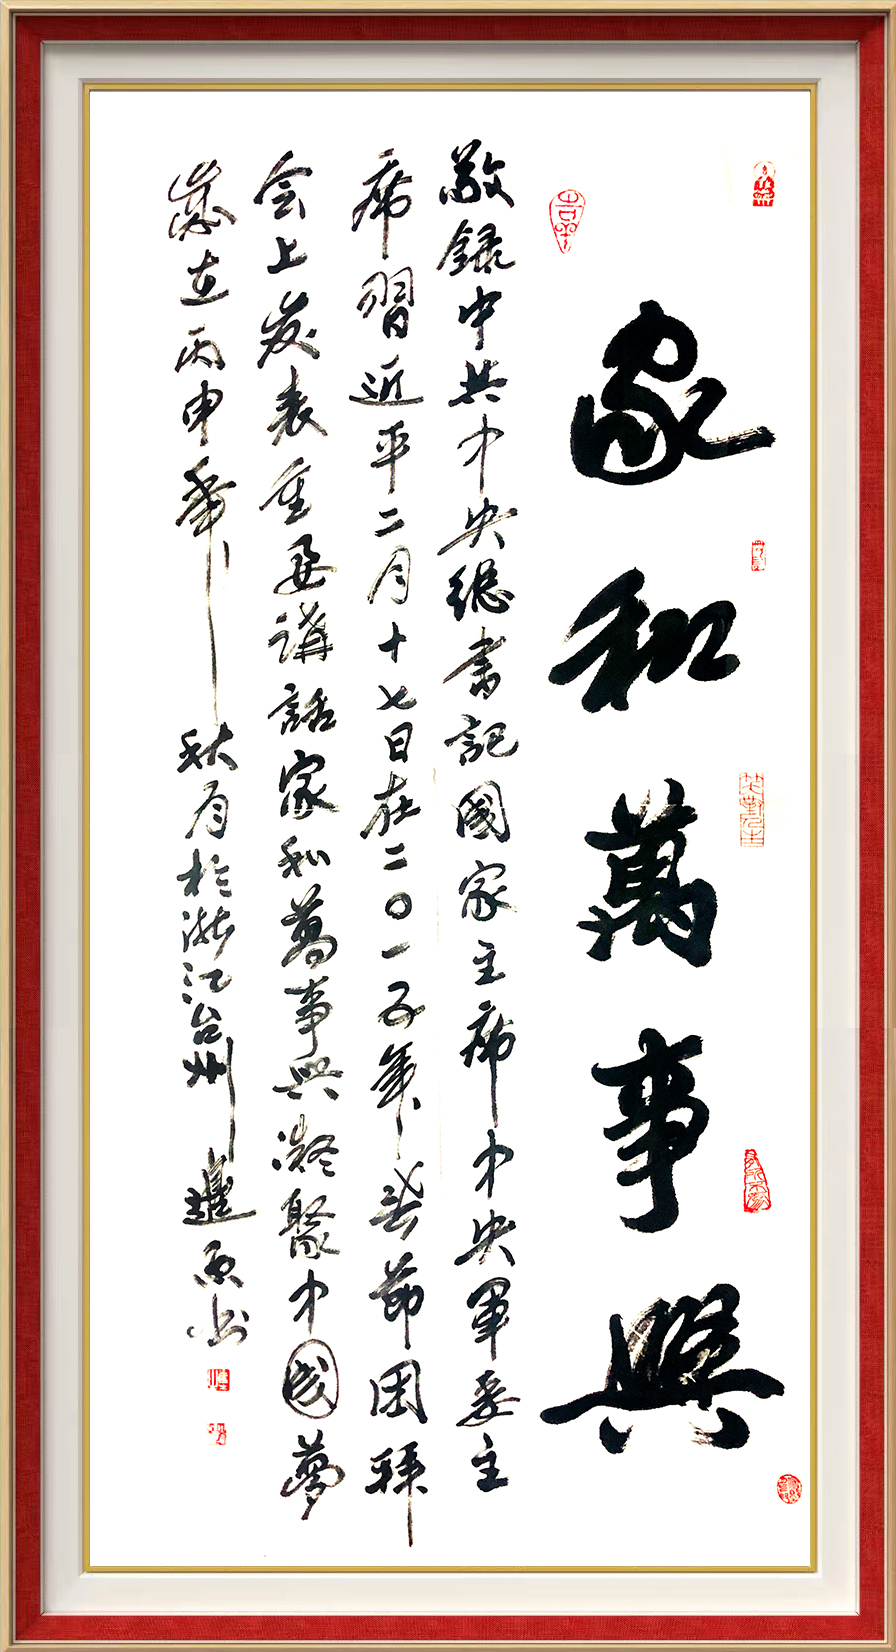 家和萬事興
敬録中共中央總書記國家主席中央軍委主
席習近平二月十七日在二〇一五年春節團拜
会上發表重要講話家和萬事興凝聚中國夢
歲在丙申年秋月於浙江台州原書